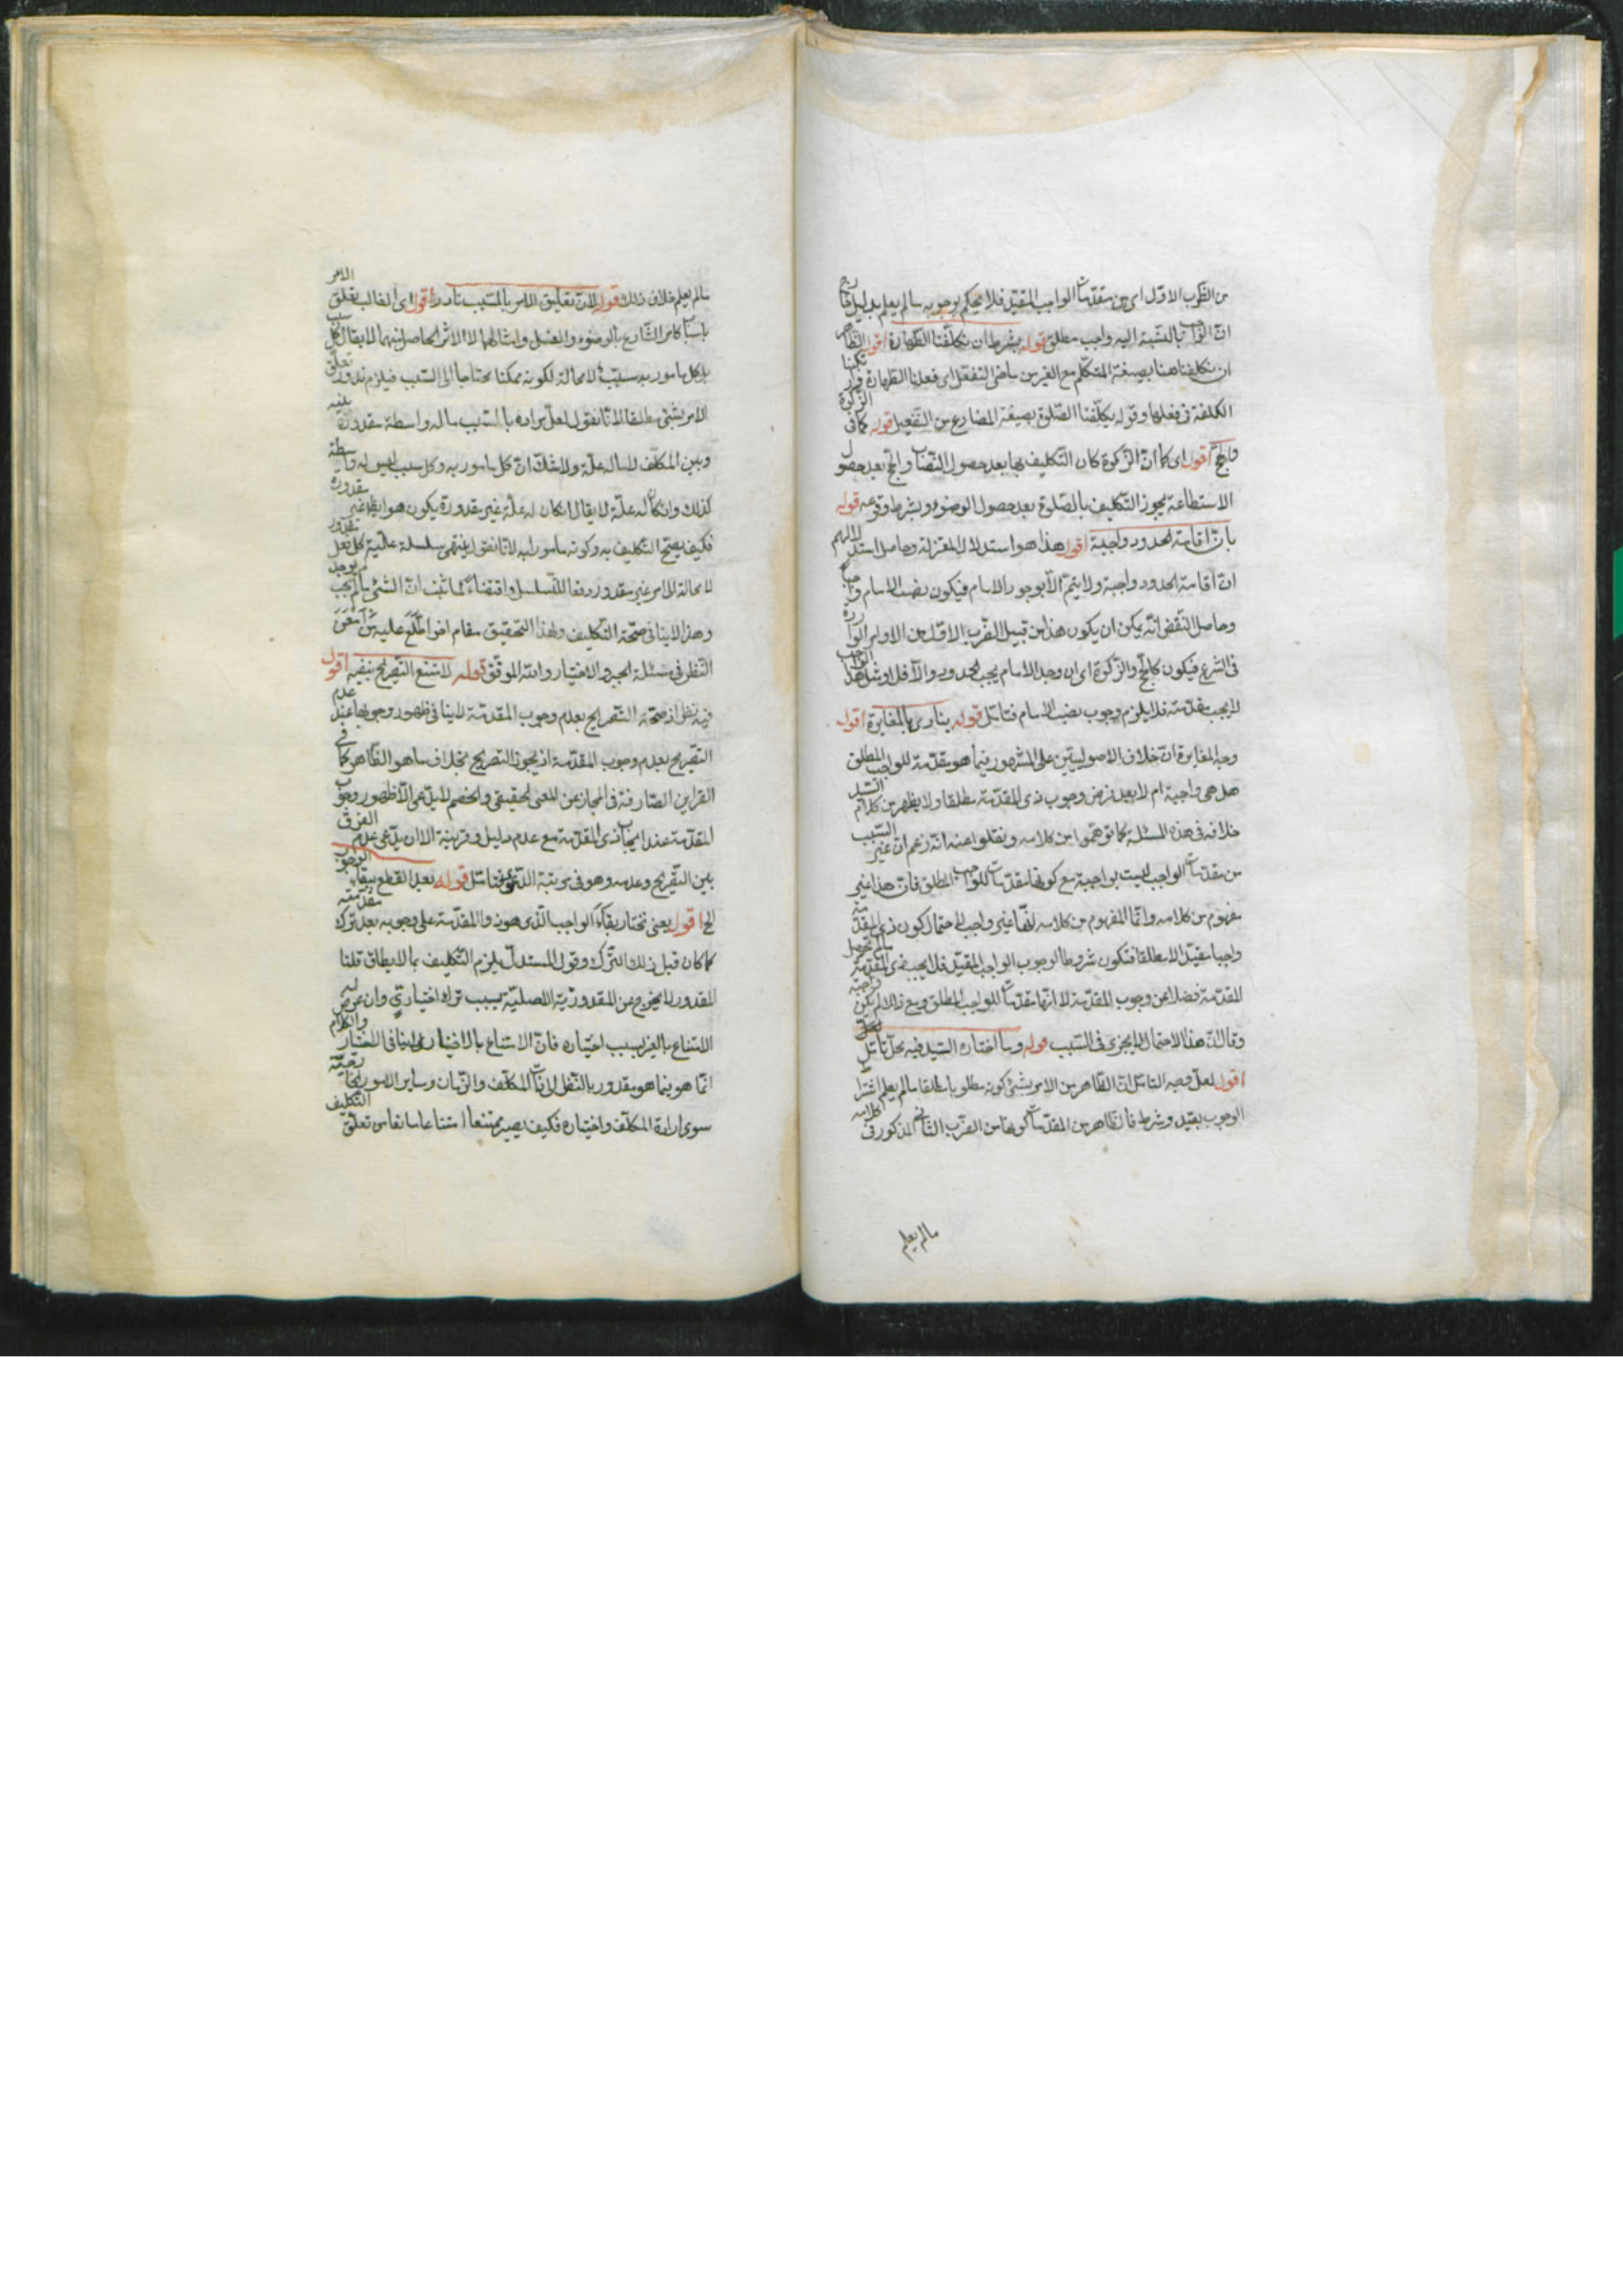 من الضرب الاوّل اى من مقدّمات الواجب المقيّد فلا يحكم بوجوبه ما لم يعلم بدليل خارج
انّ الواجب بالنّسبة اليه واجب مطلق قوله بشرط ان تكلّفنا الطّهارة اقول الظّاهر
ان تكلفنا هنا بصيغة المتكلّم مع الغير من ماضى التفعّل اى فعلنا الطّهارة
الكلفة فى فعلها وقوله يكلّفنا الصّلوة بصيغة المضارع من التّفعيل قوله كما فى الزّكوة
والحجّ اقول اى كما انّ الزّكوة كان التّكليف بها بعد حصول النّصاب والحجّ بعد حصول
الاستطاعة يجوز التّكليف بالصّلوة بعد حصول الوضوء وبشرط وقوعه قوله
بانّ اقامة الحدود واجبة اقول هذا هو استدلال المعتزلة وحاصل استدلالهم
انّ اقامة الحدود واجبة ولا يتمّ الّا بوجود الامام فيكون نصب الامام واجبا
وحاصل النّقض انّه يمكن ان يكون هذا من قبيل الضّرب الاوّل من الاوامر الواردة
فى الشّرع فيكون كالحجّ والزّكوة اى ان وجد الامام يجب الحدود والّا فلا ومثل هذا الواجب
لا يجب مقدّمته فلا يلزم وجوب نصب الامام فتامّل قوله ينادى بالمغايرة اقول
وجه المغايرة انّ خلاف الاصوليّين على المشهور فيما هو مقدّمة للواجب المطلق
هل هى واجبة ام لا بعد فرض وجوب ذى المقدّمة مطلقا ولا يظهر من كلام السّيد
خلافه فى هذه المسئلة كما توهّموا من كلامه ونقلوا عنه انّه زعم انّ غير السّبب
من مقدّمات الواجب ليست بواجبة مع كونها مقدّمات للواجب المطلق فانّ هذا غير
مفهوم من كلامه وانّما المفهوم من كلامه انّها غير واجب لاحتمال كون ذى المقدّمة
واجبا مقيّدا لا مطلقا فتكون شروطا لوجوب الواجب المقيّد فلا يجب ذى المقدّمة ما لم تحصل
المقدّمة فضلا عن وجوب المقدّمة لا انّها مقدّمات للواجب المطلق ومع ذلك لم يكن واجبة
وقال انّ هذا الاحتمال لا يجرى فى السّبب قوله وما اختاره السّيد فيه محلّ تامّل
اقول لعلّ وجه التامّل انّ الظّاهر من الامر بشئ كونه مطلوبا مطلقا ما لم يعلم اشتراط
الوجوب بقيد وشرط فالظّاهر من المقدّمات كونها من الضّرب الثانى المذكور فى كلامه
ما لم يعلم
ما لم يعلم خلاف ذلك قوله لانّ تعليق الامر بالمسبّب نادر اقول اى الغالب تعلّق الامر
باسباب كامر الشّارع بالوضوء والغسل وامثالهما لا الاثر الحاصل منهما لا يقال لكلّ
بل كل مامور به سبب لا محالة لكونه ممكنا محتاجا الى السّبب فيلزم ندور تعلّق
الامر بشئ مطلقا لانّا نقول لعلّ مراده بالمسبّب ما له واسطة مقدورة بينه
وبين المكلّف لا ما له علّة ولا شكّ انّ كل مامور به وكل سبب ليس له واسطة
كذلك وان كان له علّة لا يقال ان كان له علّة غير مقدورة يكون هو ايضا غير مقدور
فكيف يصحّ التّكليف به وكونه مامورا به لانّا نقول ينتهى سلسلة علّية كل فعل مقدور
لا محالة الى امر غير مقدور دفعا للتّسلسل واقتضاء لما ثبت انّ الشّئ ما لم يجب لم يوجد
وهذا لا ينافى صحّة التّكليف ولهذا التّحقيق مقام اخر اطّلع عليه من امعن
النّظر فى مسئلة الجبر والاختيار والله الموفّق قوله لامتنع التّصريح بنفيه اقول
فيه نظر اذ صحّة التّصريح بعدم وجوب المقدّمة لا ينافى ظهور وجوبها عند عدم
التّصريح بعدم وجوب المقدّمة اذ يجوز التصريح بخلاف ما هو الظّاهر كما فى
القراين الصّارفة فى المجاز عن المعنى الحقيقى والخصم لا يدّعى الّا ظهور وجوب
المقدّمة عند ايجاب ذى المقدّمة مع عدم دليل وقرينة الّا ان يدّعى عدم الفرق
بين التّصريح وعدمه وهو فى مرتبة المدّعى فتامّل قوله بعد القطع ببقاء الوجوب
الخ اقول يعنى نختار بقاء الواجب الّذى هو ذو المقدّمة على وجوبه بعد ترك مقدّمته
كما كان قبل ذلك التّرك وقول المستدلّ يلزم التّكليف بما لا يطاق قلنا
المقدور لا يخرج عن المقدوريّة الاصليّة بسبب ترك اختيارىّ وان عرض له
الامتناع بالغير بسبب اختياره فانّ الامتناع بالاختيار لا ينافى الاختيار والكلام
انّما هو فيما هو مقدور بالنّظر الى ذات المكلّف والزّمان وساير الامور الخارجيّة
سوى ارادة المكلّف واختياره فكيف يصير ممتنعا امتناعا مانعا من تعلّق التّكليف